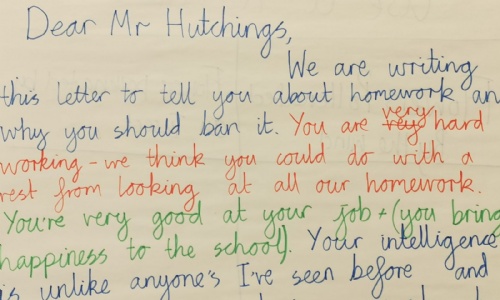 Dear Mr Hutchings,
We are writing
this letter to tell you about homework an
why you should ban it. You are very hard
working - we think you could do with a
rest from looking at all our homework.
You're very good at your job + (you bring
happiness to the school). Your intelligence
is unlike anyone's I've seen before and